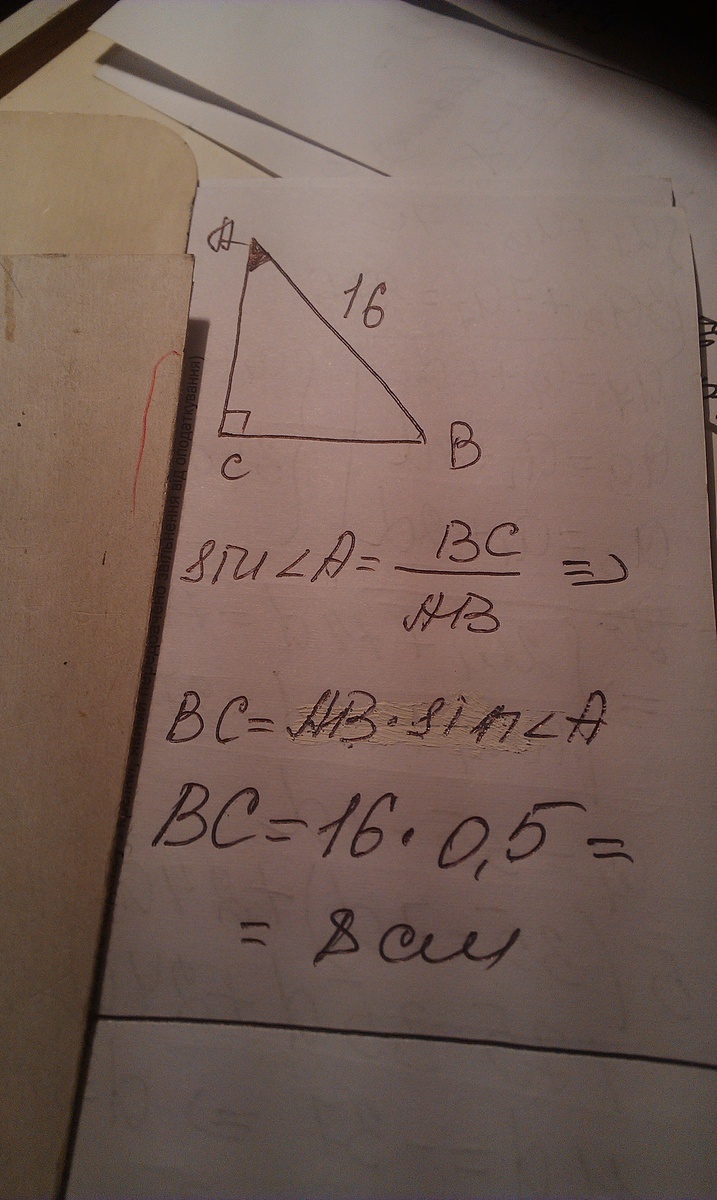 A
16
C
B
sin∠A = BC/AB ⇒
BC = AB·sin∠A
BC = 16·0,5 =
= 8 см